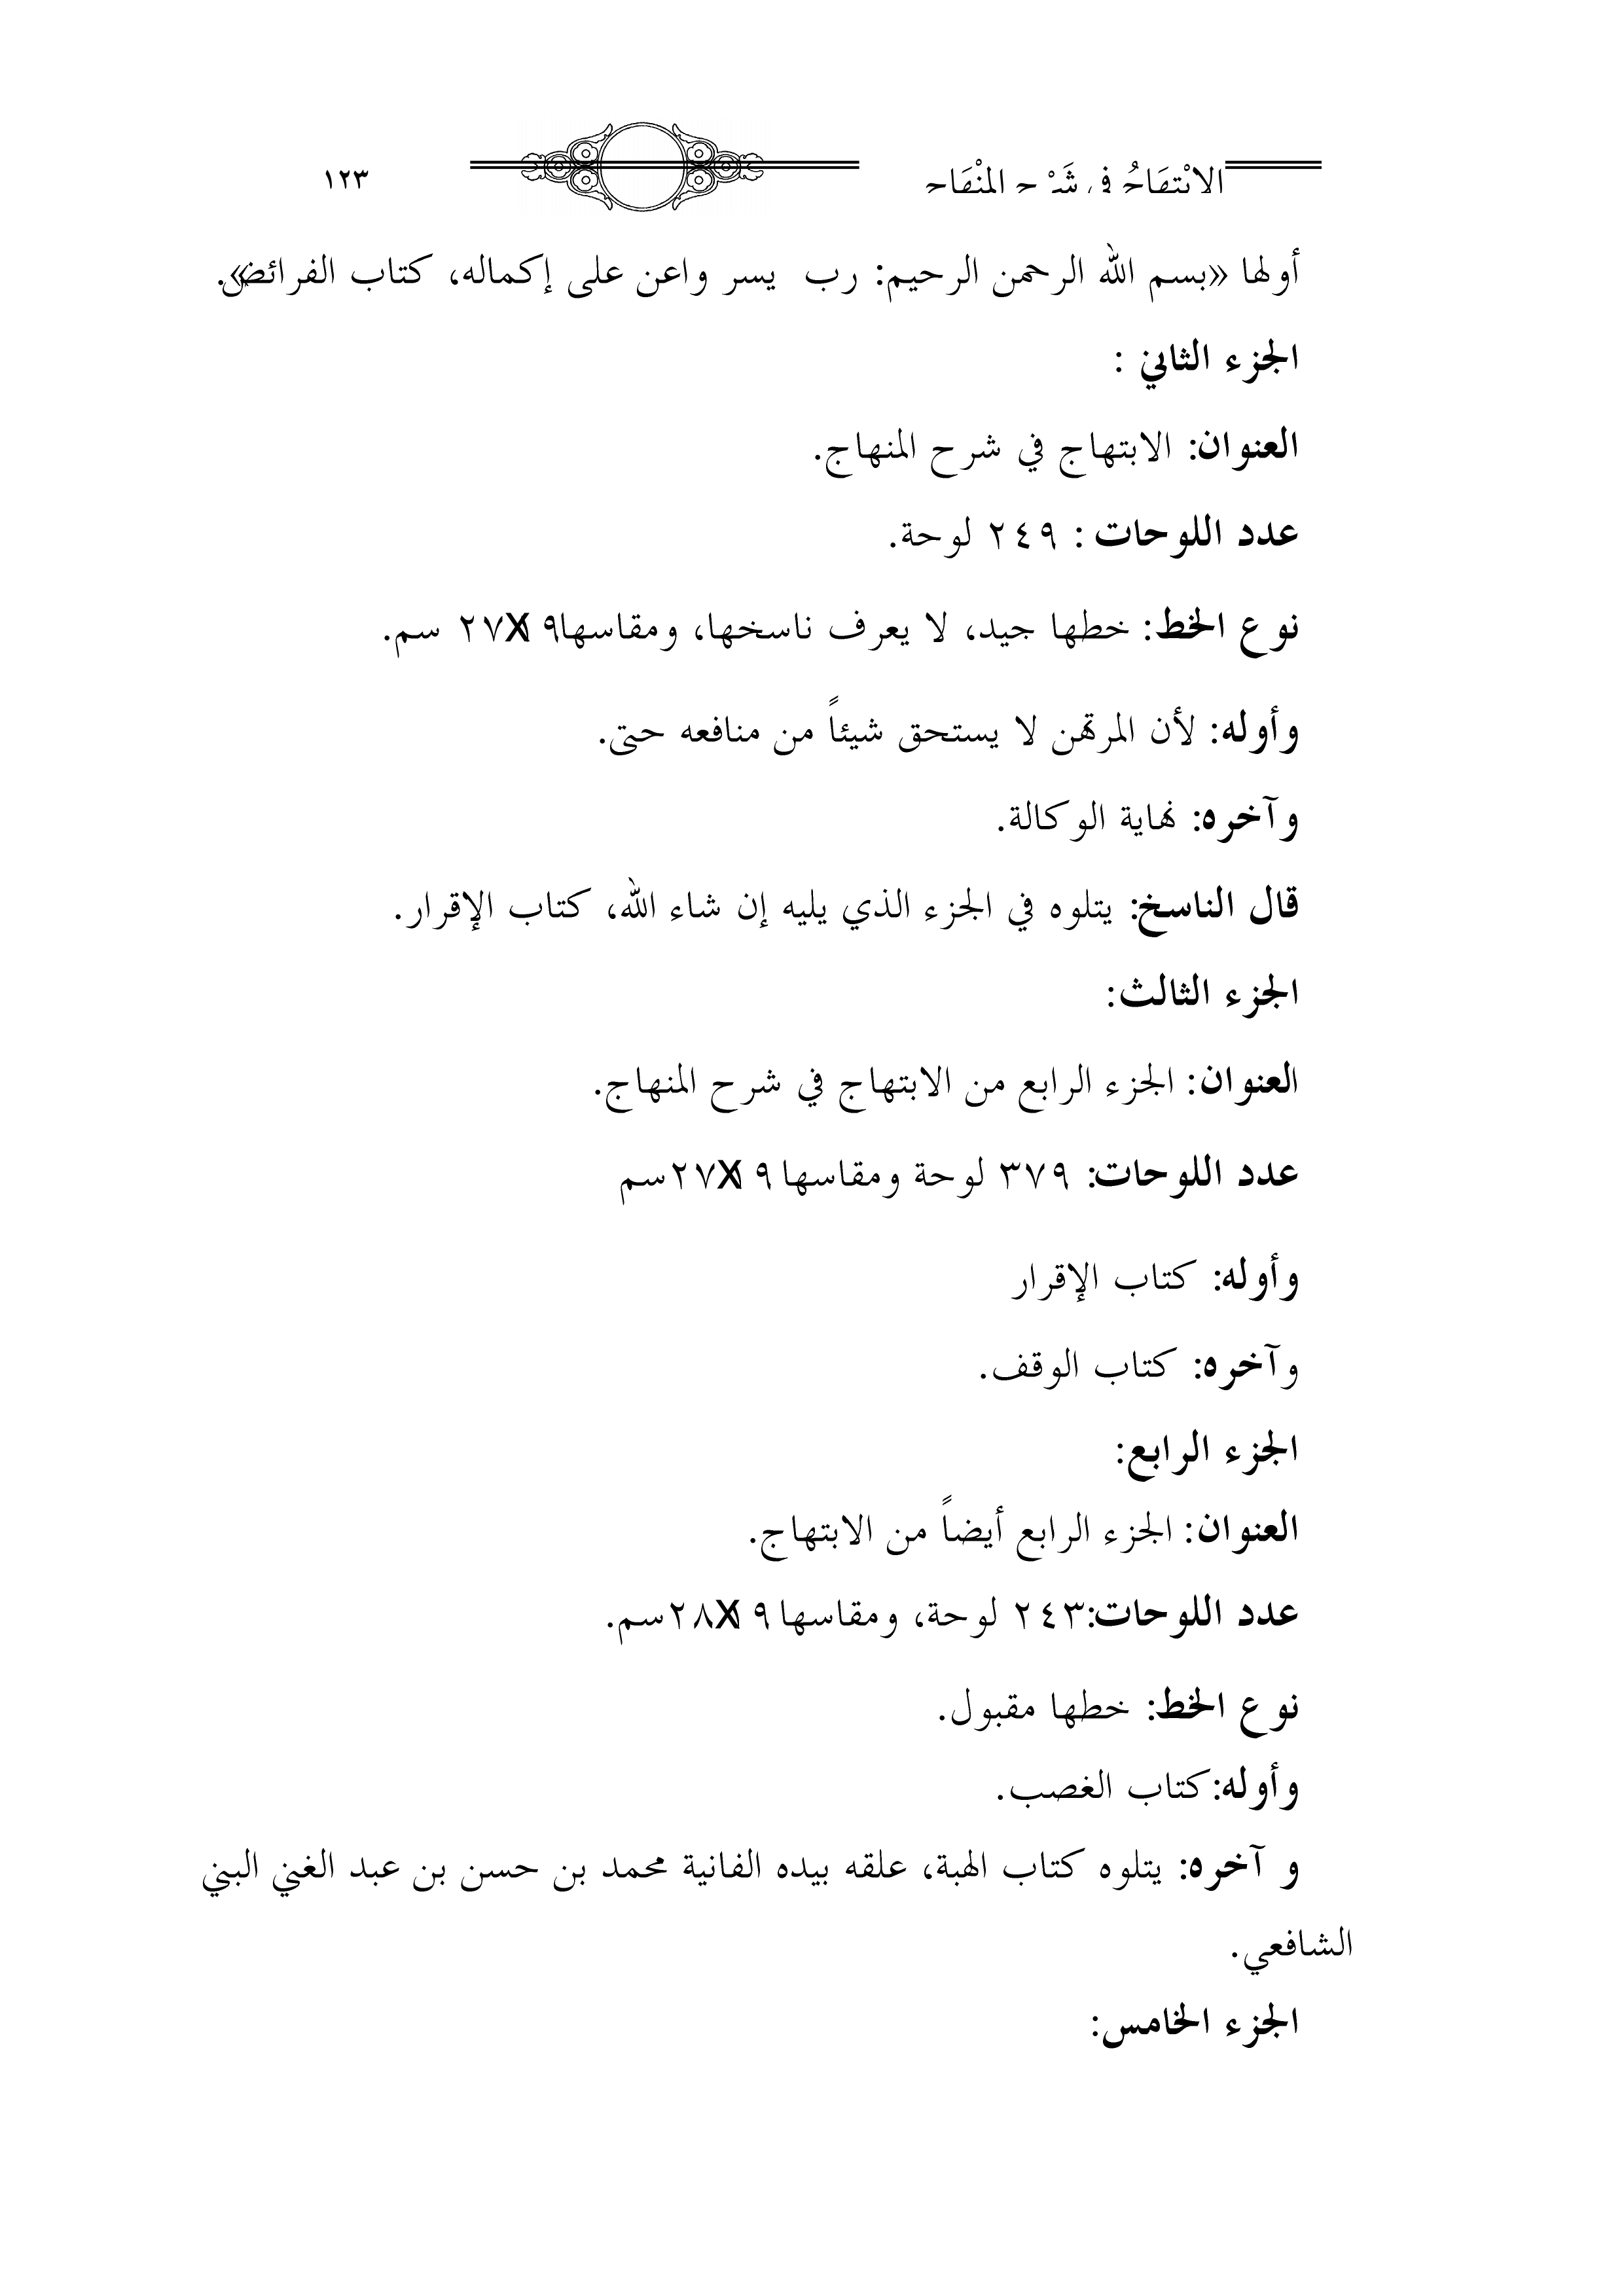 الابْتِهَاجُ في شَرْحِ المِنْهَاجِ ١٢٣
أولها «بسم الله الرحمن الرحيم: رب يسر واعن على إكماله، كتاب الفرائض».
الجزء الثاني :
العنوان: الابتهاج في شرح المنهاج.
عدد اللوحات : ٢٤٩ لوحة.
نوع الخط: خطها جيد، لا يعرف ناسخها، ومقاسها١٩X٢٧ سم.
وأوله: لأن المرتهن لا يستحق شيئاً من منافعه حتى.
وآخره: نهاية الوكالة.
قال الناسخ: يتلوه في الجزء الذي يليه إن شاء الله، كتاب الإقرار.
الجزء الثالث:
العنوان: الجزء الرابع من الابتهاج في شرح المنهاج.
عدد اللوحات: ٣٧٩ لوحة ومقاسها ١٩X٢٧سم
وأوله: كتاب الإقرار
وآخره: كتاب الوقف.
الجزء الرابع:
العنوان: الجزء الرابع أيضاً من الابتهاج.
عدد اللوحات:٢٤٣ لوحة، ومقاسها ١٩X٢٨سم.
نوع الخط: خطها مقبول.
وأوله:كتاب الغصب.
و آخره: يتلوه كتاب الهبة، علقه بيده الفانية محمد بن حسن بن عبد الغني البني
الشافعي.
الجزء الخامس: